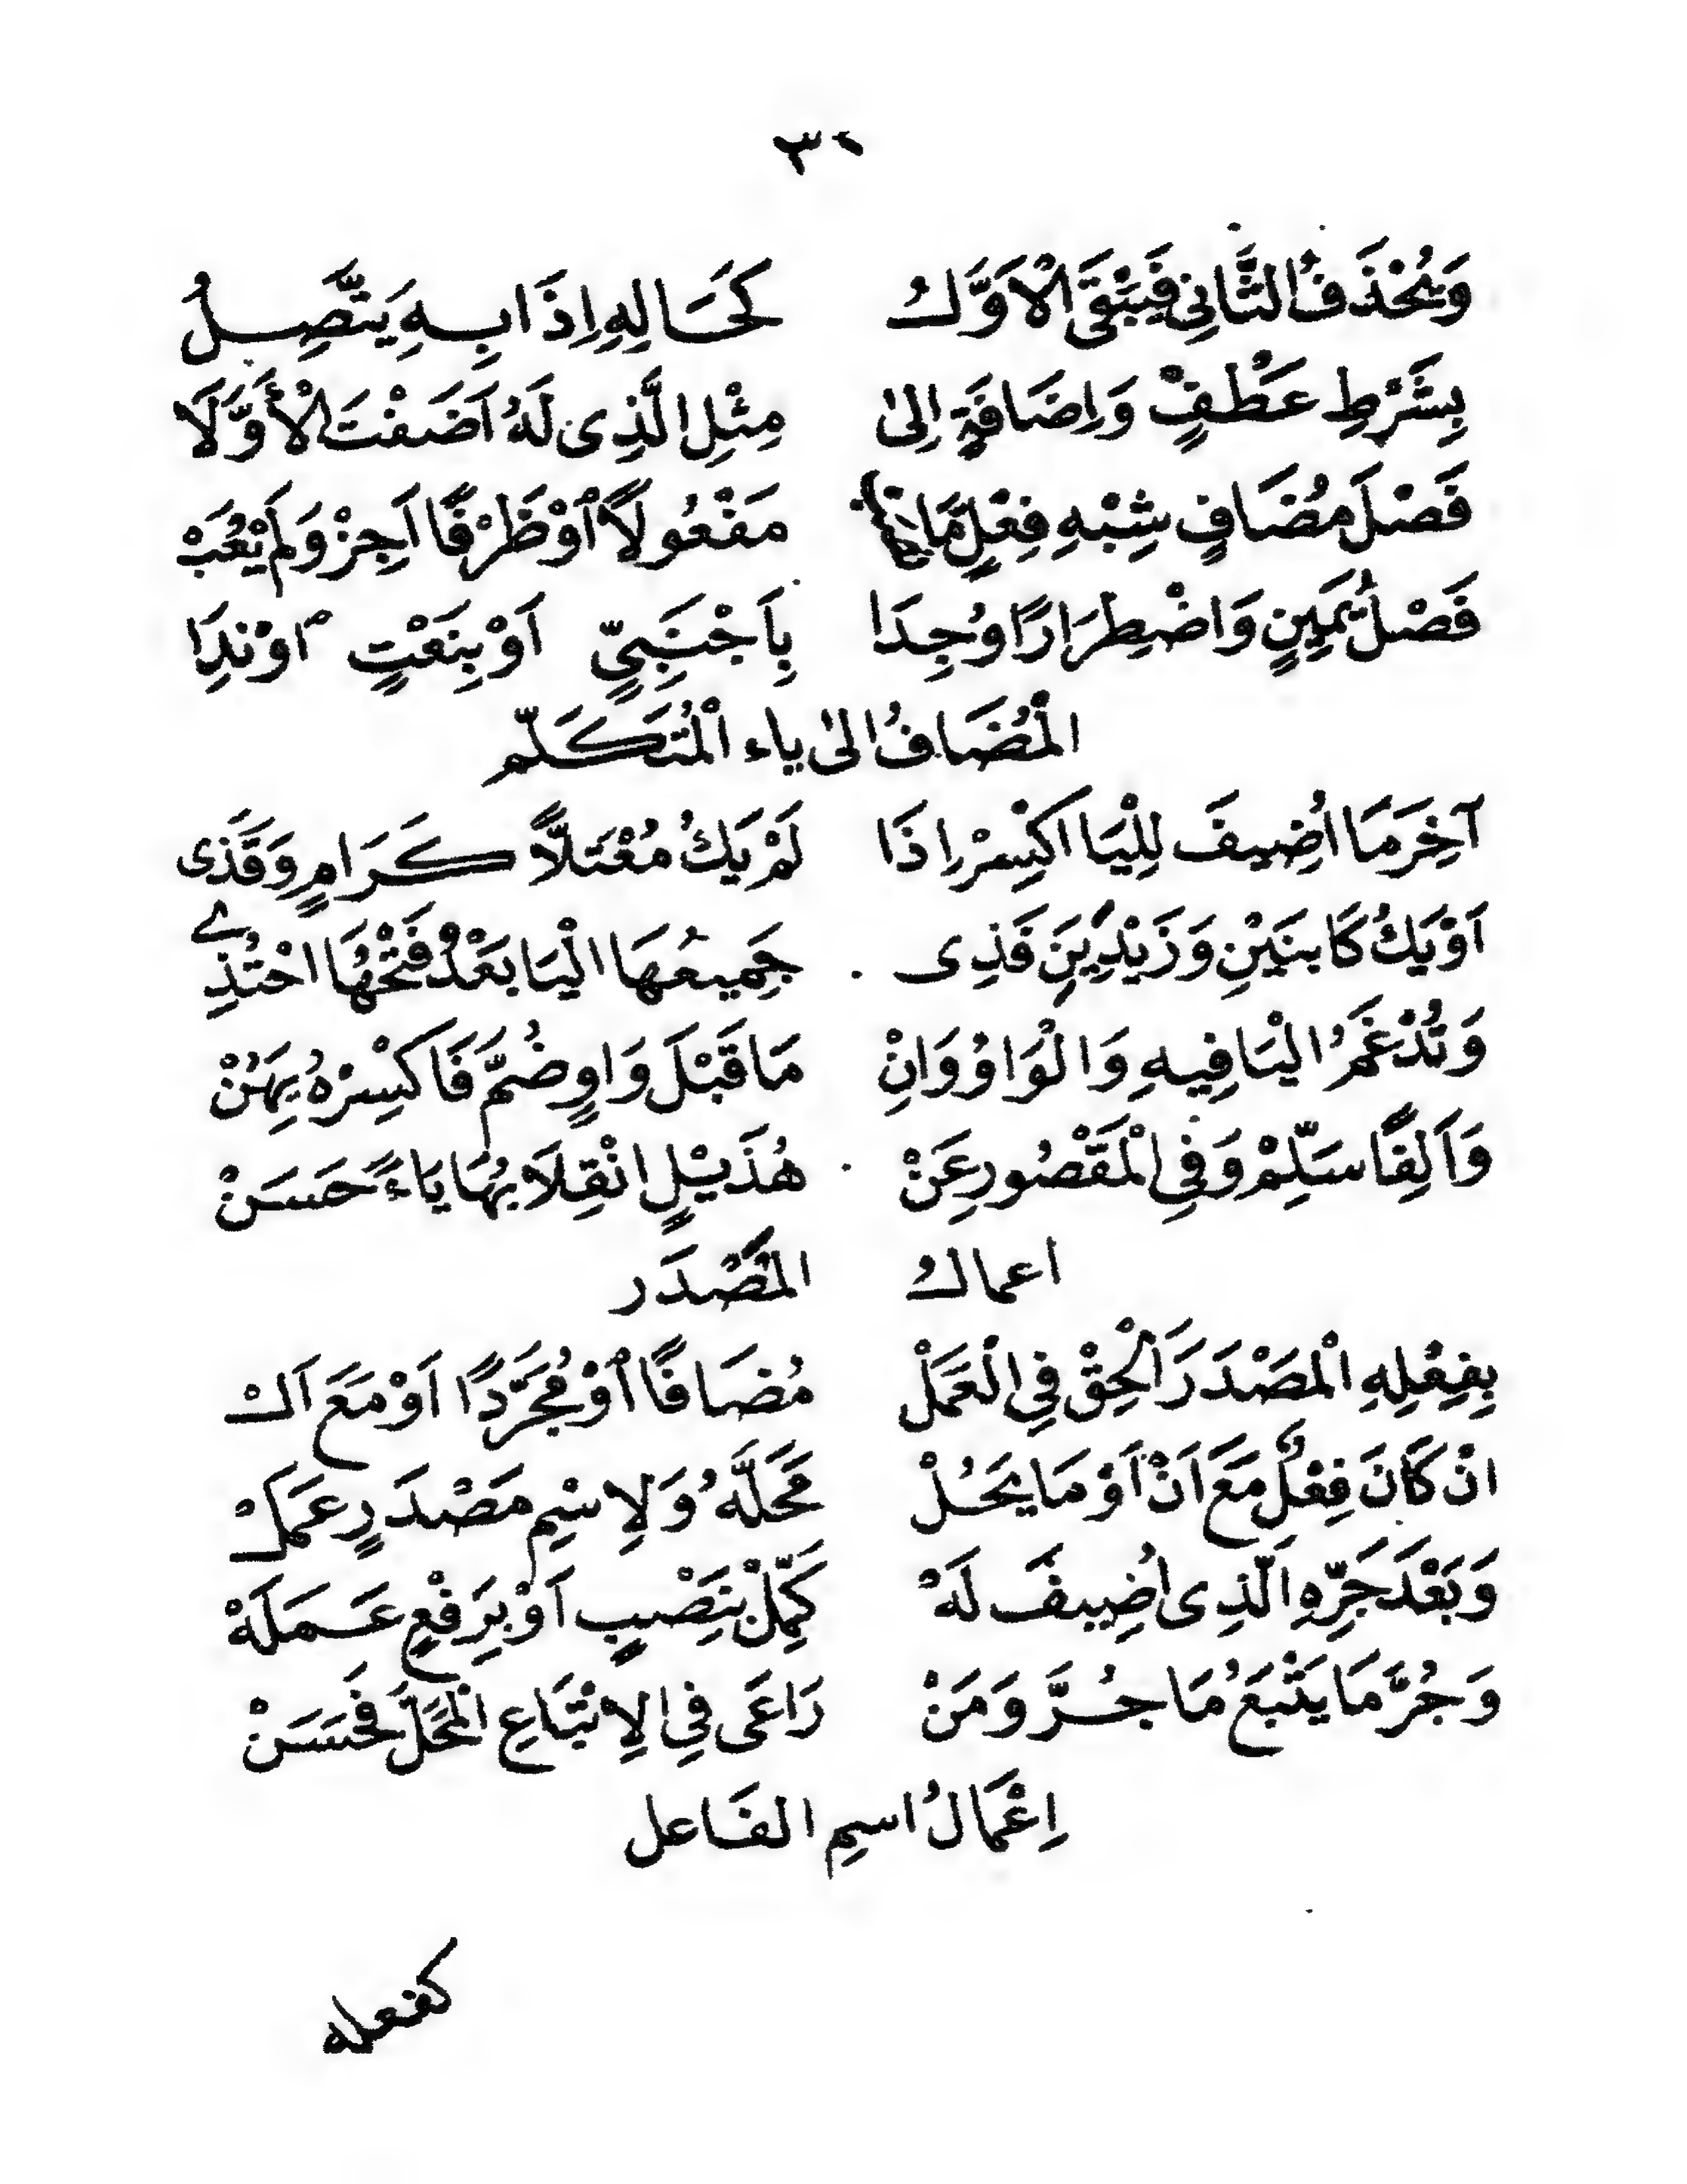 ٣٠
وَيُحْذَفُ الثَّانِي فَيَبْقَى الْاَوَّلُ كَحَالِهِ اِذَا بِهِ يَتَّصِلُ
بِشَرْطِ عَطْفٍ وَاِضَافَةٍ اِلىٰ مِثْلِ الَّذِى لَهُ اَضَفْتَ الْأَوَّلَا
فَصْلَ مُضَافٍ شِبْهِ فِعْلٍ مَا مَفْعُولاً أَوْ ظَرْفًا اَجِزْ وَلَمْ يُعَبْ
فَصْلُ يَمِينٍ وَاضْطِرَارًا وُجِدَا بِاَجْنَبِيٍّ اَوْ بِنَعْتٍ اَوْ نِدَا
الْمُضَافُ الىٰ ياء الْمُتَكَلّم
آخِرَ مَا اُضِيفَ لِلْيَا اكْسِرْ اِذَا لَمْ يَكُ مُعْتَلّاً كَرَامٍ وَقَذَى
اَوْ يَكُ كَابْنَيْنِ وَزَيْدِينَ فَذِى جَمِيعُهَا الْيَا بَعْدُ فَتْحُهَا احْتُذِي
وَتُدْغَمُ الْيَا فِيهِ وَالْوَاوُ وَاِنْ مَا قَبْلَ وَاوٍ ضُمَّ فَاكْسِرْهُ يَهُنْ
وَاَلِفًا سَلِّمْ وَفِى الْمَقْصُورِ عَنْ هُذَيْلٍ انْقِلَابُهَا يَاءً حَسَنْ
اعمالُ المَصْدَر
بِفِعْلِهِ الْمَصْدَرَ اَلْحِقْ فِي الْعَمَلْ مُضَافًا أَوْ مُجَرَّدًا اَوْ مَعَ اَلْ
انْ كَانَ فِعْلٌ مَعَ اَنْ اَوْ مَا يَحُلْ مَحَلَّهُ وَلِاسْمِ مَصْدَرٍ عَمَلْ
وَبَعْدَ جَرِّهِ الَّذِى اُضِيفَ لَهْ كَمِّلْ بِنَصْبٍ اَوْ بِرَفْعٍ عَمَلَهْ
وَجُرَّ مَا يَتْبَعُ مَا جُرَّ وَمَنْ رَاعَى فِي الِاتْبَاعِ الْمَحَلَّ فَحَسَنْ
اِعْمَالُ اسمِ الفَاعل
كفعله